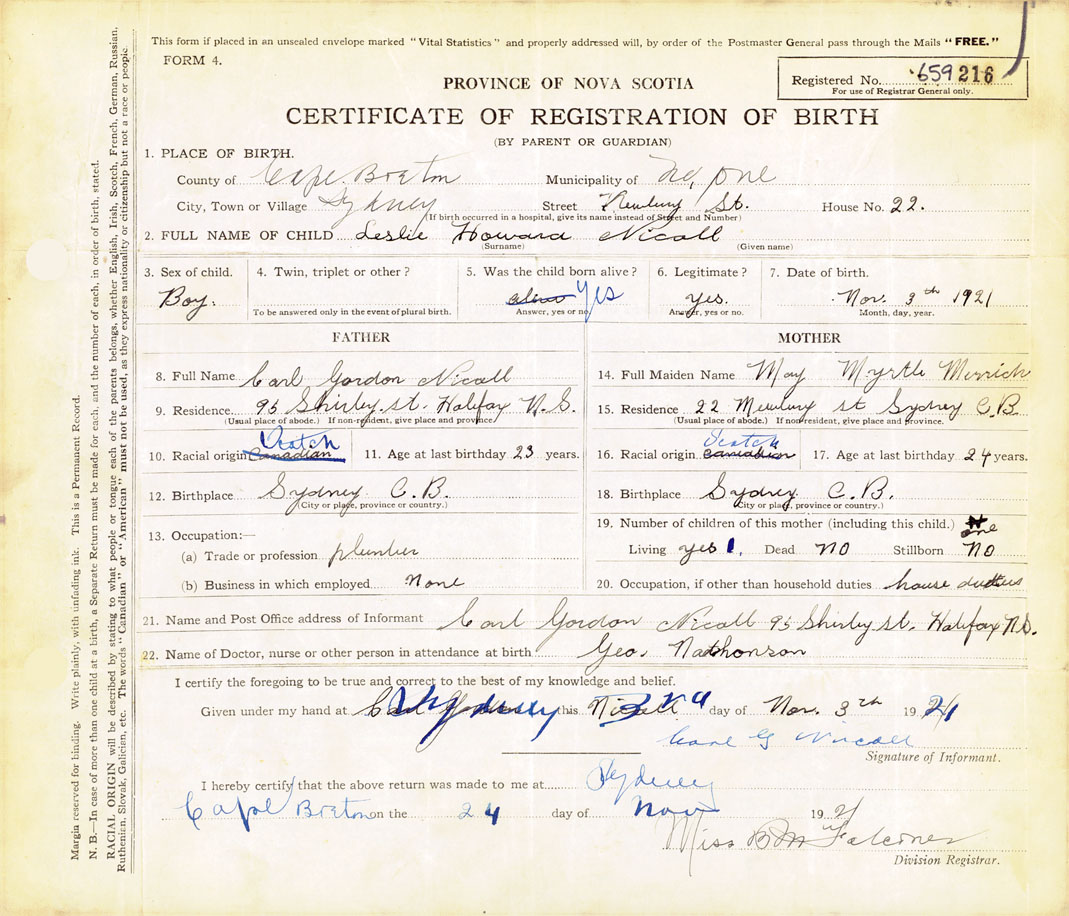 This form if placed in an unsealed envelope marked "Vital Statistics" and properly addressed will, by order of the Postmaster General pass through the Mails "FREE."
FORM 4.
Registered No. 659216
For use of Registrar General only.
PROVINCE OF NOVA SCOTIA
CERTIFICATE OF REGISTRATION OF BIRTH
(BY PARENT OR GUARDIAN)
1. PLACE OF BIRTH.
County of Cape Breton Municipality of No, one
City, Town or Village Sydney Street Newbury St. House No. 22.
(If birth occurred in a hospital, give its name instead of Street and Number)
2. FULL NAME OF CHILD Leslie Howard Nicoll
(Surname) (Given name)
3. Sex of child. 4. Twin, triplet or other? 5. Was the child born alive? 6. Legitimate? 7. Date of birth.
Boy. alive Yes yes. Nov. 3th 1921
To be answered only in the event of plural birth. Answer, yes or no. Answer, yes or no. Month, day, year.
FATHER MOTHER
8. Full Name Carl Gordon Nicoll 14. Full Maiden Name May Myrtle Merrich
9. Residence 95 Shirley. st. Halifax N.S. 15. Residence 22 st Sydney C.B
(Usual place of abode.) If non-resident, give place and province. (Usual place of abode.) If non-resident, give place and province.
Scotch Scotch
10. Racial origin Canadian 11. Age at last birthday 23 years. 16. Racial origin Canadian 17. Age at last birthday 24 years.
12. Birthplace Sydney C.B. 18. Birthplace Sydney C.B.
(City or place, province or country.) (City or place, province or country.)
13. Occupation:— 19. Number of children of this mother (including this child.) one
(a) Trade or profession plumber Living yes 1, Dead NO Stillborn NO
(b) Business in which employed None 20. Occupation, if other than household duties house duties
21. Name and Post Office address of Informant Carl Gordon Nicoll 95 Shirley st. Halifax N.S.
22. Name of Doctor, nurse or other person in attendance at birth Geo. Nathonson
I certify the foregoing to be true and correct to the best of my knowledge and belief.
Given under my hand at Sydney this 3rd day of Nov. 3th 1921
Carl G Nicoll
Signature of Informant.
I hereby certify that the above return was made to me at Sydney
Cape Breton on the 24 day of Nov 1921
Miss B M Falconer
Division Registrar.
Margin reserved for binding. Write plainly, with unfading ink. This is a Permanent Record.
N. B.—In case of more than one child at a birth, a Separate Return must be made for each, and the number of each, in order of birth, stated.
RACIAL ORIGIN will be described by stating to what people or tongue each of the parents belongs, whether English, Irish, Scotch, French, German, Russian,
Ruthenian, Slovak, Galician, etc. The words "Canadian" or "American" must not be used, as they express nationality or citizenship but not a race or people.